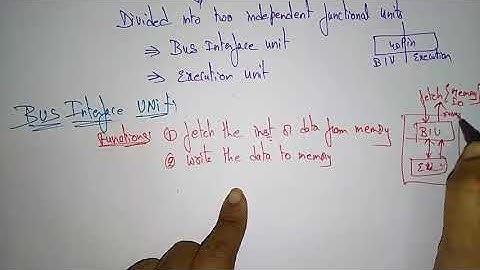 Divided into two independent functional units
⇒ Bus Interface unit
⇒ Execution unit
40 pin
BIU Execution
BUS Interface UNit:
Functions: ① fetch the inst or data from memory
② write the data to memory
fetch memory
IO
BIU